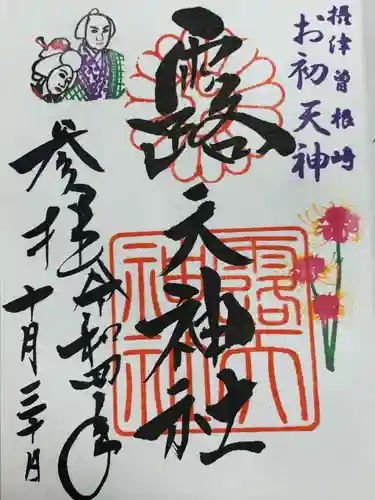 摂津曽根崎
お初天神
露天神社
参拝 令和四年
十月三十日